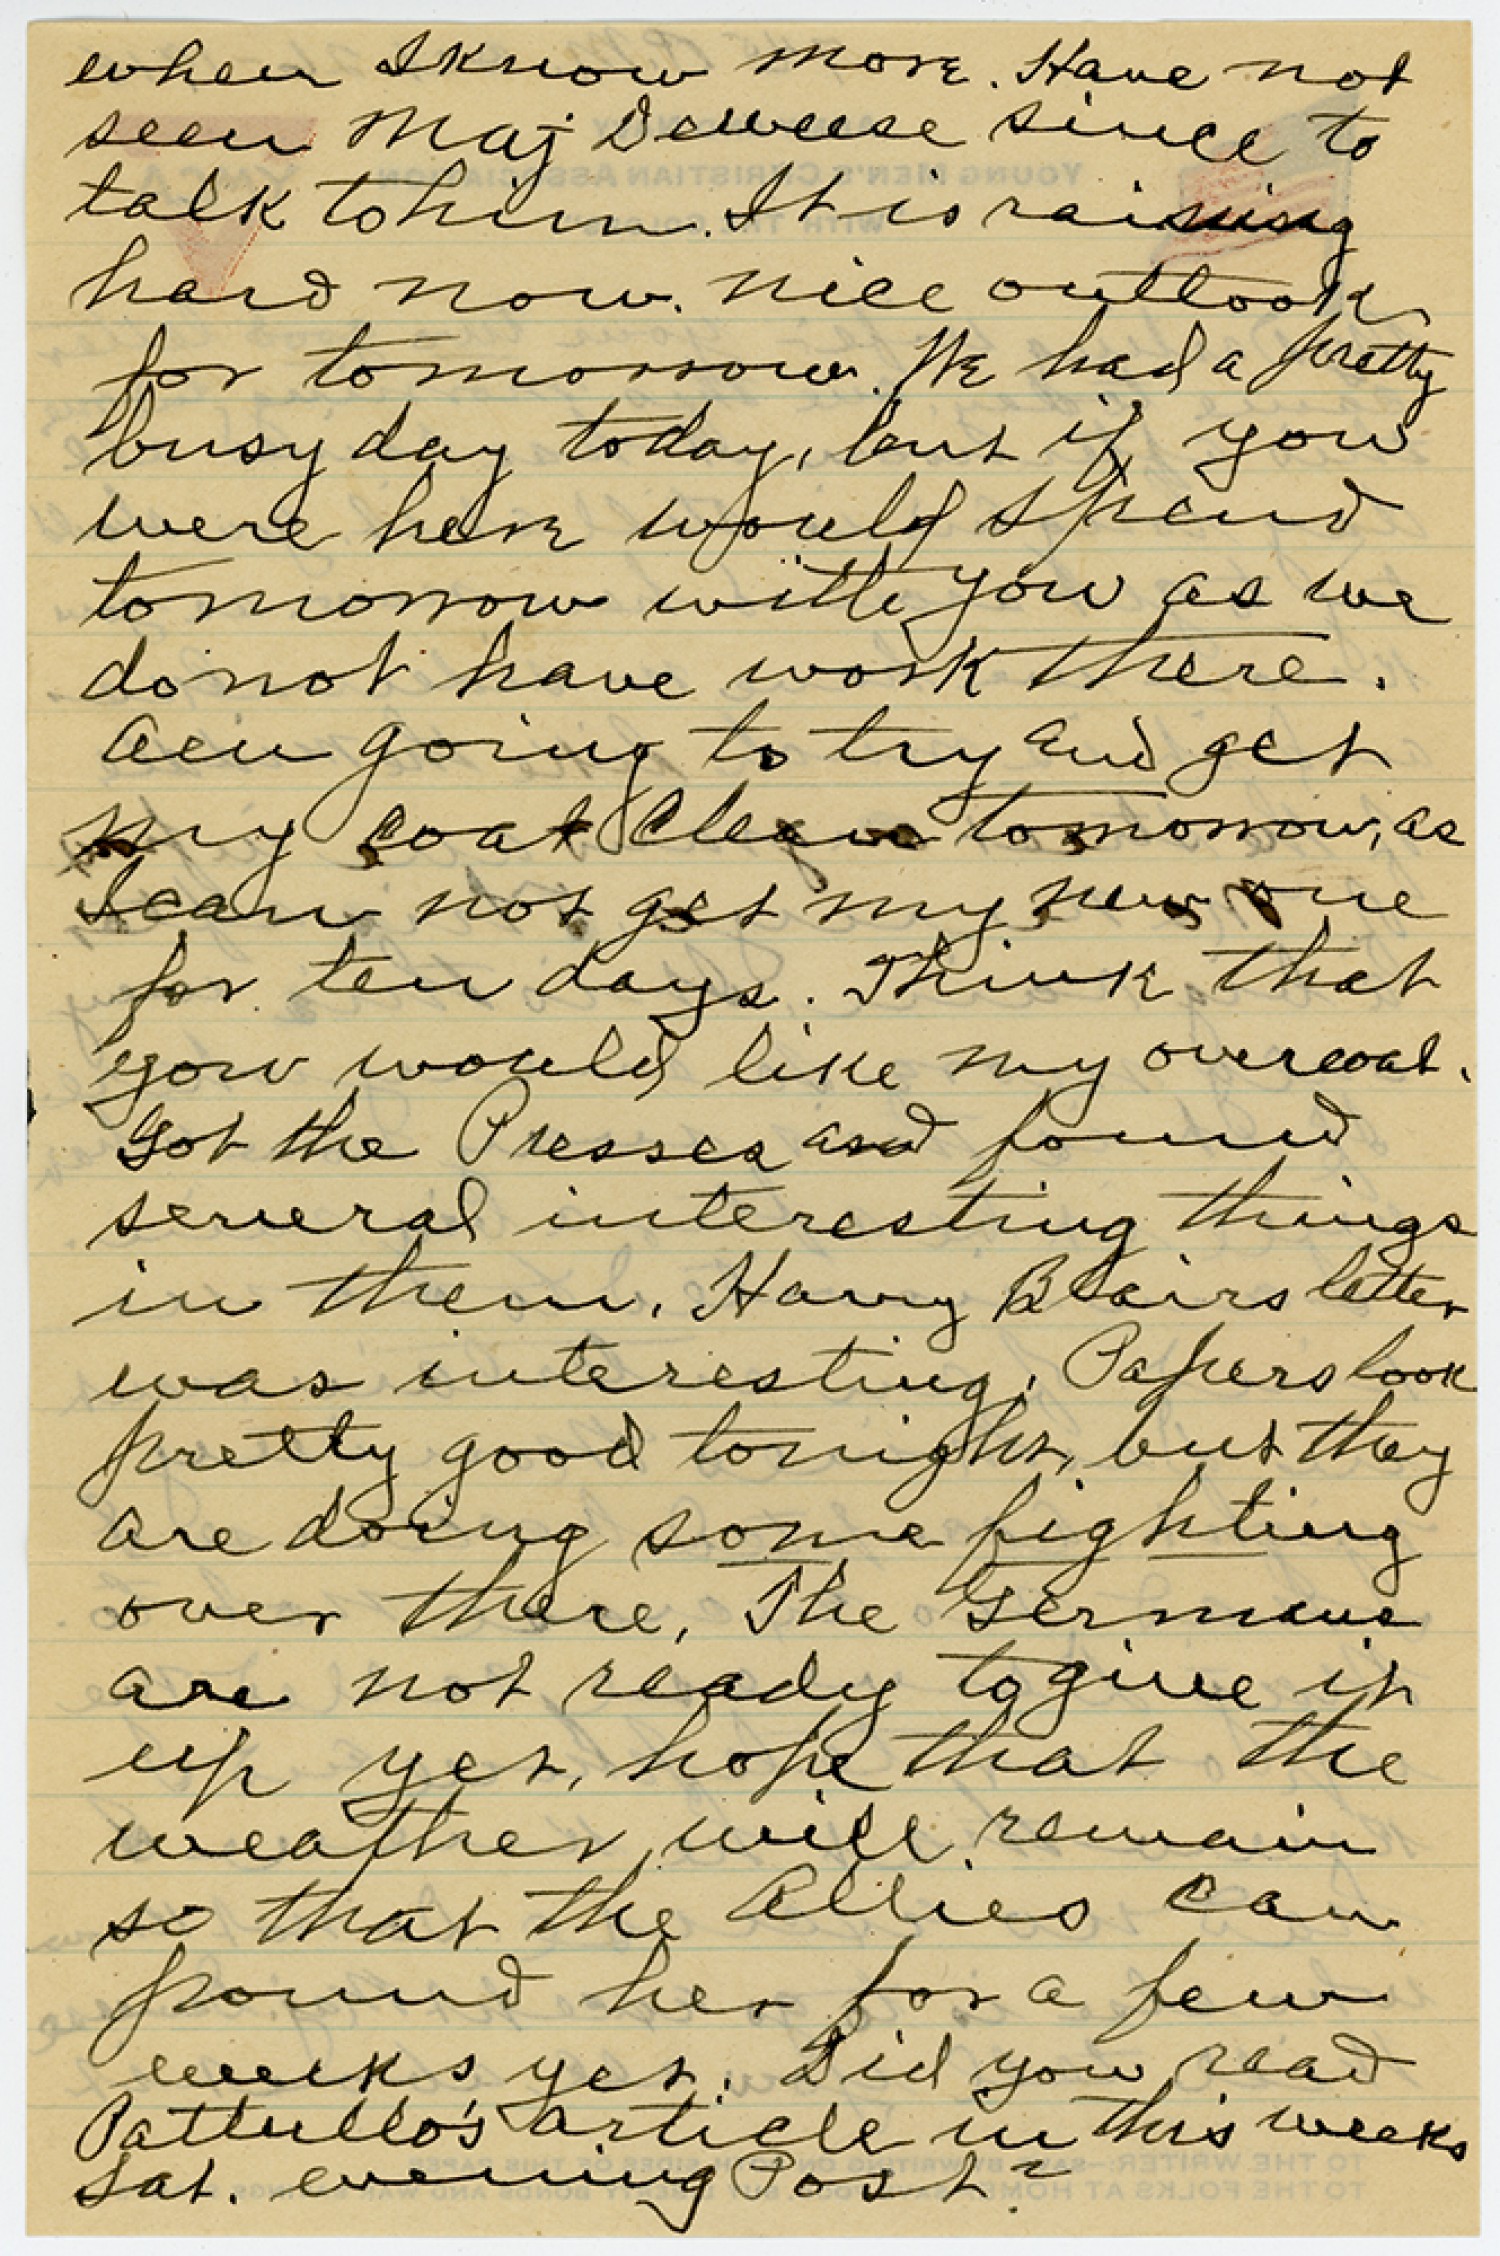 when I know more. Have not
seen Maj Deweese since to
talk to him. It is raining
hard now. nice outlook
for tomorrow. We had a pretty
busy day today, but if you
were here would spend
tomorrow with you as we
do not have work there.
Am going to try and get
my coat clean tomorrow, as
I can not get my new one
for ten days. Think that
you would like my overcoat.
Got the Presses and found
several interesting things
in them. Harry Blairs letter
was interesting. Papers look
pretty good tonight, but they
are doing some fighting
over there, The Germans
are not ready to give it
up yet, hope that the
weather will remain
so that the Allies can
pound her for a few
weeks yet. Did you read
Pattullo's article in this weeks
Sat. evening Post?
YOUNG MEN'S CHRISTIAN ASSOCIATION
WITH THE COLORS